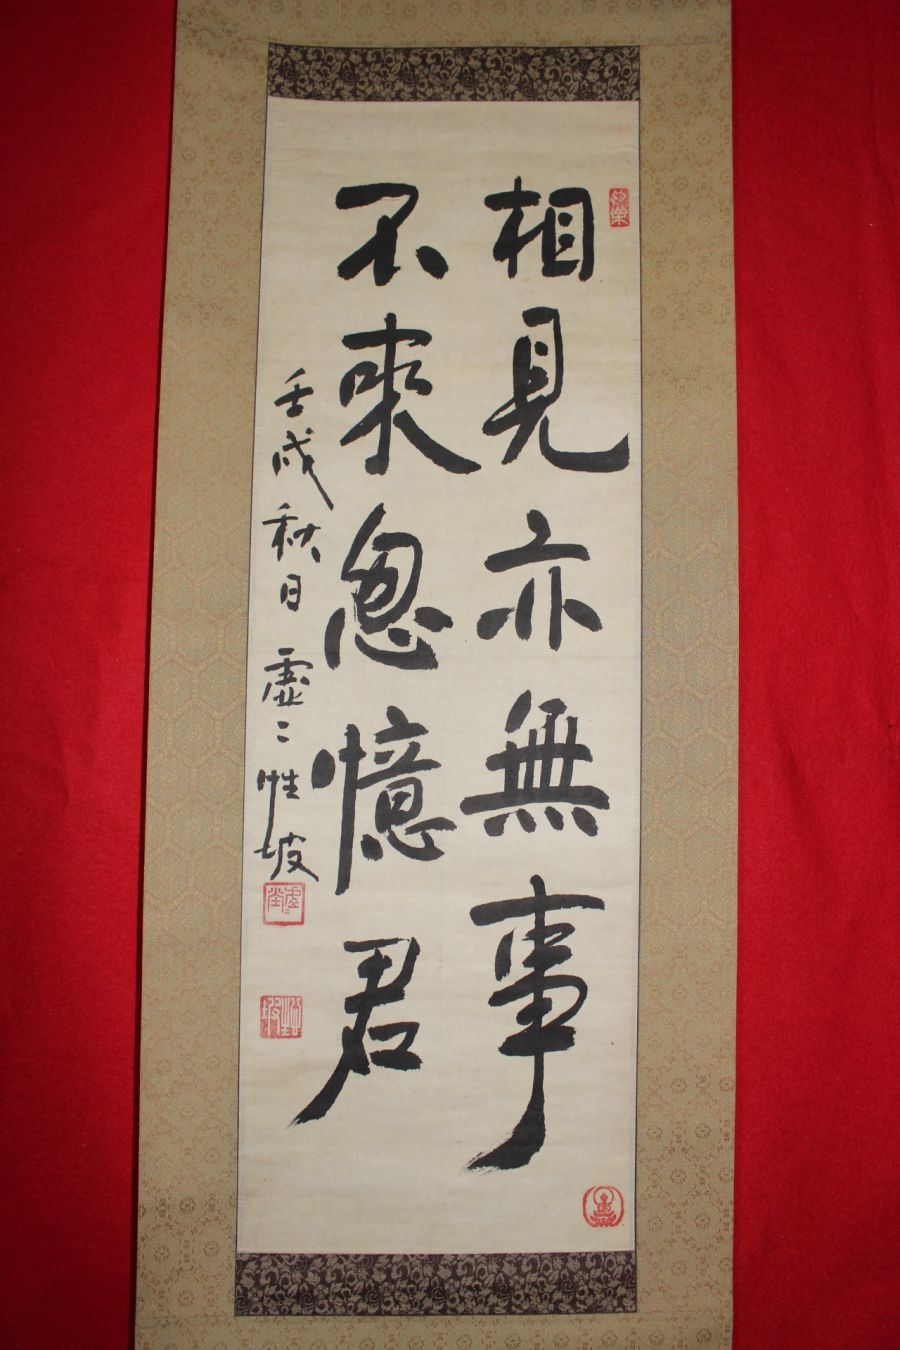 相見亦無事
不來忽憶君
壬戌秋日 虛〻性坡